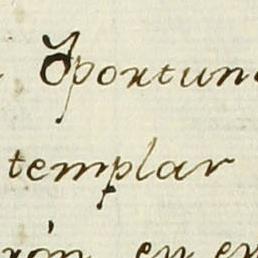 Oportun
templar
rón en en